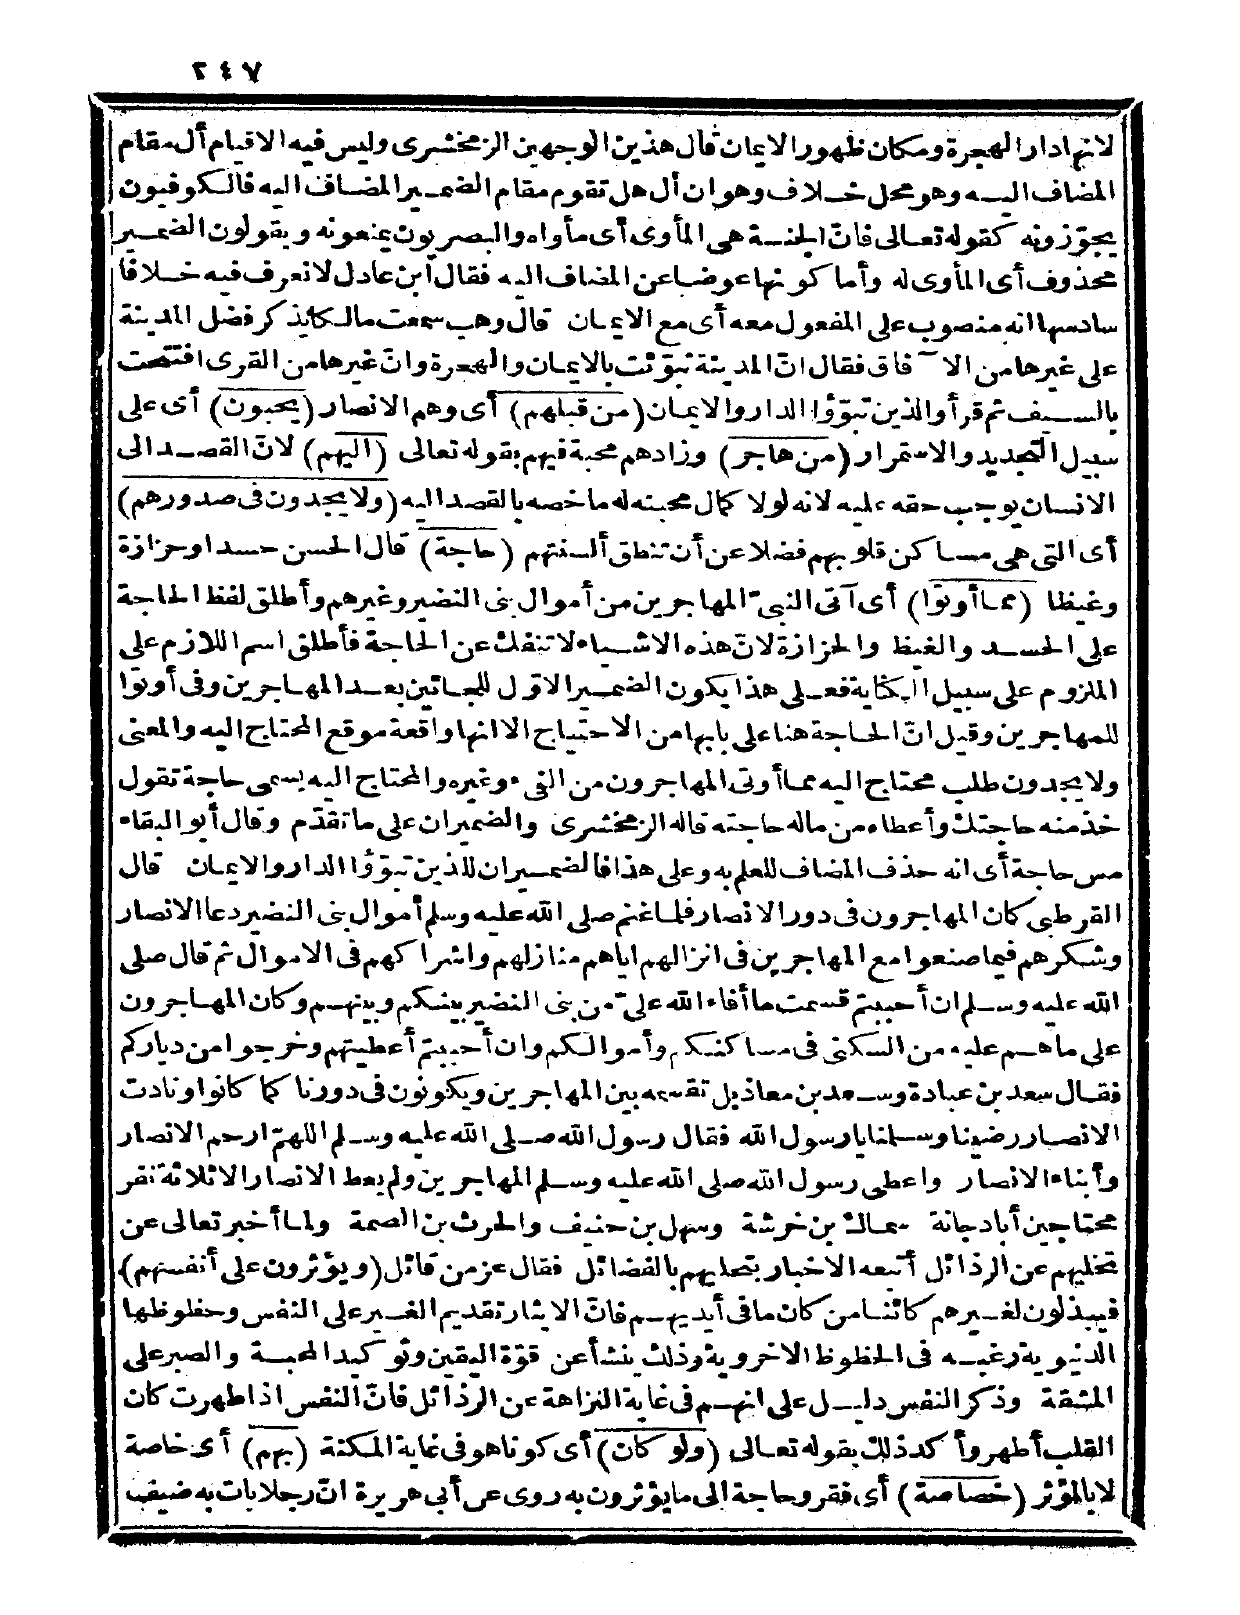 ٢٤٧
لانها دار الهجرة ومكان ظهور الايمان قال هذين الوجهين الزمخشرى وليس فيه الاقيام أل مقام
المضاف اليه وهو محل خلاف وهو ان أل هل تقوم مقام الضمير المضاف اليه فالكوفيون
يجوّزونه كقوله تعالى فانّ الجنة هى المأوى أى مأواه والبصريون يمنعونه ويقولون الضمير
محذوف أى المأوى له وأما كونها عوضا عن المضاف اليه فقال ابن عادل لا نعرف فيه خلافا
سادسها انه منصوب على المفعول معه أى مع الايمان قال وهب سمعت مالكا يذكر فضل المدينة
على غيرها من الآفاق فقال انّ المدينة تبوّئت بالايمان والهجرة وانّ غيرها من القرى افتتحت
بالسيف ثم قرأ والذين تبوّؤا الدار والايمان (من قبلهم) أى وهم الانصار (يحبون) أى على
سبيل التجديد والاستمرار (من هاجر) وزادهم محبة فيهم بقوله تعالى (اليهم) لانّ القصد الى
الانسان يوجب حقه عليه لانه لولا كمال محبته له ما خصه بالقصد اليه (ولا يجدون فى صدورهم)
أى التى هى مساكن قلوبهم فضلا عن أن تنطق ألسنتهم (حاجة) قال الحسن حسدا وحزازة
وغيظا (مما أوتوا) أى آتى النبىّ المهاجرين من أموال بنى النضير وغيرهم وأطلق لفظ الحاجة
على الحسد والغيظ والحزازة لانّ هذه الاشياء لا تنفك عن الحاجة فأطلق اسم اللازم على
الملزوم على سبيل الكناية فعلى هذا يكون الضمير الاوّل للجائين بعد المهاجرين وفى أوتوا
للمهاجرين وقيل انّ الحاجة هنا على بابها من الاحتياج الا انها واقعة موقع المحتاج اليه والمعنى
ولا يجدون طلب محتاج اليه مما أوتى المهاجرون من الفىء وغيره والمحتاج اليه يسمى حاجة تقول
خذ منه حاجتك وأعطاه من ماله حاجته قاله الزمخشرى والضميران على ما تقدّم وقال أبو البقاء
مس حاجة أى انه حذف المضاف للعلم به وعلى هذا فالضميران للذين تبوّؤا الدار والايمان قال
القرطبى كان المهاجرون فى دور الانصار فلما غنم صلى الله عليه وسلم أموال بنى النضير دعا الانصار
وشكرهم فيما صنعوا مع المهاجرين فى انزالهم اياهم منازلهم واشراكهم فى الاموال ثم قال صلى
الله عليه وسلم ان أحببتم قسمت ما أفاء الله علىّ من بنى النضير بينكم وبينهم وكان المهاجرون
على ما هم عليه من السكنى فى مساكنكم وأموالكم وان أحببتم أعطيتهم وخرجوا من دياركم
فقال سعد بن عبادة وسعد بن معاذ بل تقسمه بين المهاجرين ويكونون فى دورنا كما كانوا ونادت
الانصار رضينا وسلمنا يا رسول الله فقال رسول الله صلى الله عليه وسلم اللهمّ ارحم الانصار
وأبناء الانصار واعطى رسول الله صلى الله عليه وسلم المهاجرين ولم يعط الانصار الا ثلاثة نفر
محتاجين أبا دجانة سماك بن خرشة وسهل بن حنيف والحرث بن الصمة ولما أخبر تعالى عن
تخليهم عن الرذائل أتبعه الاخبار بتحليهم بالفضائل فقال عز من قائل (ويؤثرون على أنفسهم)
فيبذلون لغيرهم كائنا من كان ما فى أيديهم فانّ الايثار تقديم الغير على النفس وحظوظها
الدنيوية رغبة فى الحظوظ الاخروية وذلك ينشأ عن قوّة اليقين وتوكيد المحبة والصبر على
المشقة وذكر النفس دليل على انهم فى غاية النزاهة عن الرذائل فانّ النفس اذا طهرت كان
القلب أطهر وأكد ذلك بقوله تعالى (ولو كان) أى كونا هو فى غاية المكنة (بهم) أى خاصة
لا بالمؤثر (خصاصة) أى فقر وحاجة الى ما يؤثرون به روى عن أبى هريرة انّ رجلا بات به ضيف